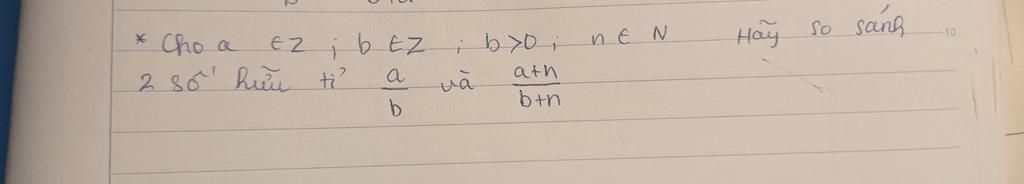 * Cho a ∈ Z ; b ∈ Z ; b > 0 ; n ∈ N Hãy so sánh
2 số hữu tỉ a/b và a+n/b+n